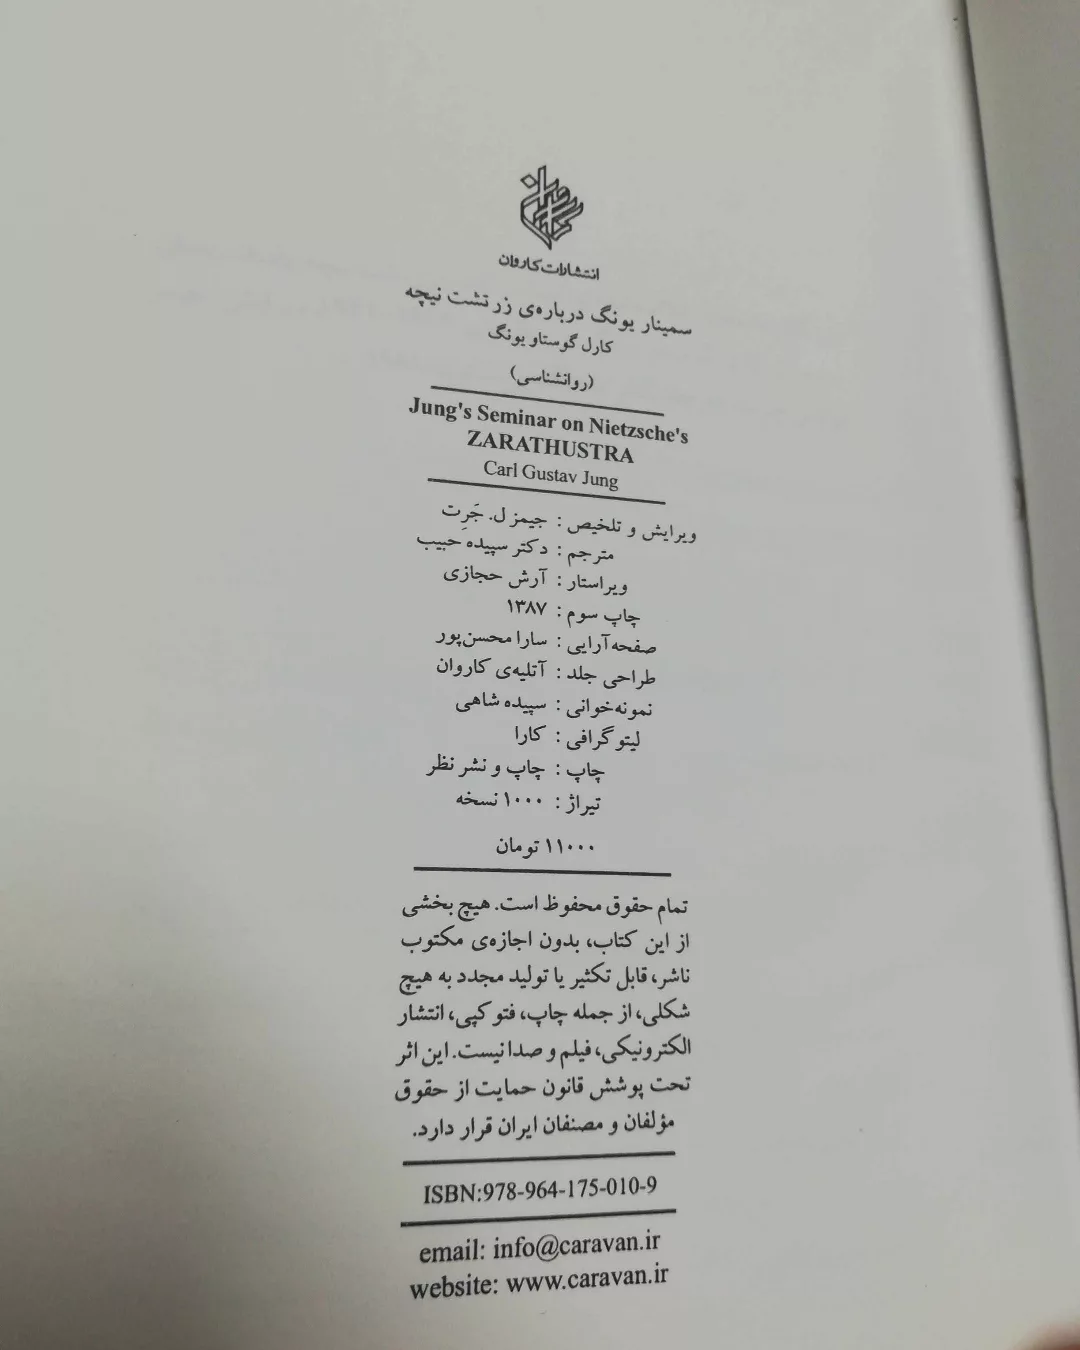 کاروان
انتشارات کاروان
سمینار یونگ درباره‌ی زرتشت نیچه
کارل گوستاو یونگ
(روانشناسی)
Jung's Seminar on Nietzsche's
ZARATHUSTRA
Carl Gustav Jung
ویرایش و تلخیص : جیمز ل. جَرِت
مترجم : دکتر سپیده حبیب
ویراستار : آرش حجازی
چاپ سوم : ۱۳۸۷
صفحه‌آرایی : سارا محسن‌پور
طراحی جلد : آتلیه‌ی کاروان
نمونه‌خوانی : سپیده شاهی
لیتوگرافی : کارا
چاپ : چاپ و نشر نظر
تیراژ : ۱۰۰۰ نسخه
۱۱۰۰۰ تومان
تمام حقوق محفوظ است. هیچ بخشی
از این کتاب، بدون اجازه‌ی مکتوب
ناشر، قابل تکثیر یا تولید مجدد به هیچ
شکلی، از جمله چاپ، فتوکپی، انتشار
الکترونیکی، فیلم و صدا نیست. این اثر
تحت پوشش قانون حمایت از حقوق
مؤلفان و مصنفان ایران قرار دارد.
ISBN:978-964-175-010-9
email: info@caravan.ir
website: www.caravan.ir